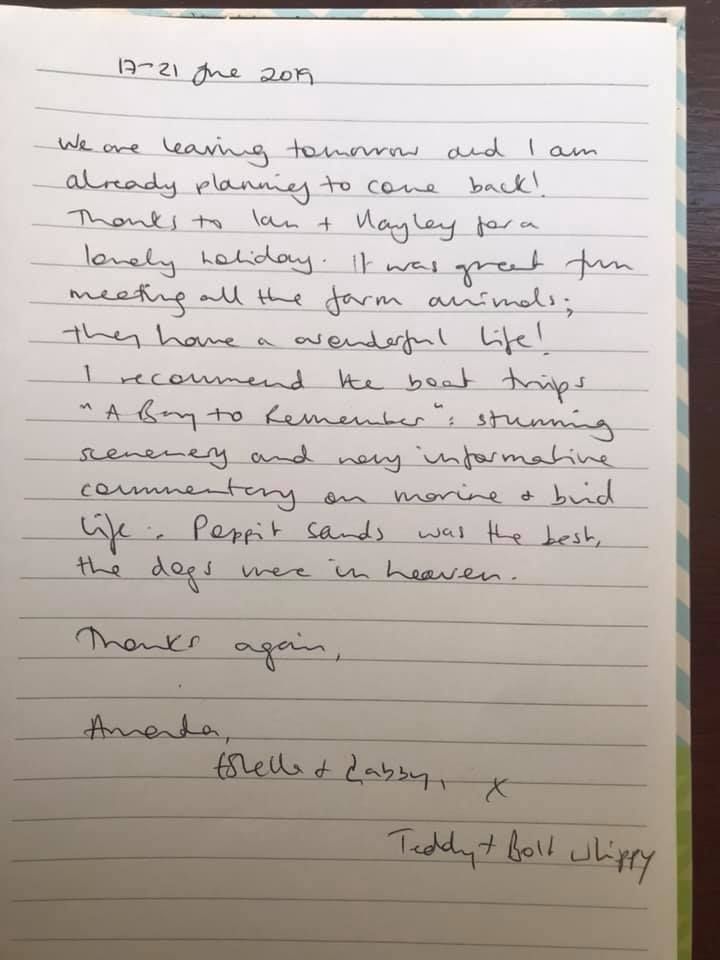 17-21 June 2019
We are leaving tomorrow and I am
already planning to come back!
Thanks to Ian + Hayley for a
lovely holiday. It was great fun
meeting all the farm animals;
they have a wonderful life!
I recommend the boat trips
"A Bay to Remember": stunning
scenenery and very informative
commentary on marine + bird
life. Poppit Sands was the best,
the dogs were in heaven.
Thanks again,
Amanda,
+ Zabby, x
Teddy + Bolt Whippy